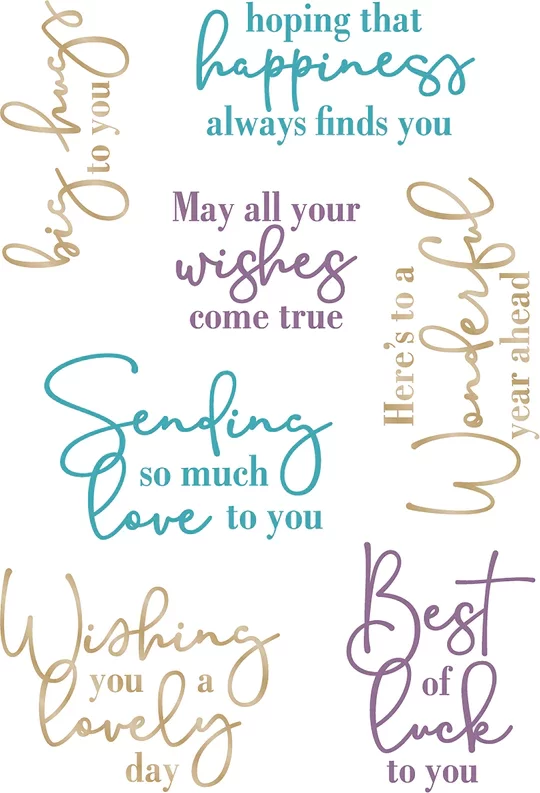 big hugs
to you
hoping that
happiness
always finds you
May all your
wishes
come true
Here's to a
Wonderful
year ahead
Sending
so much
love to you
Wishing
you a
lovely
day
Best
of
luck
to you